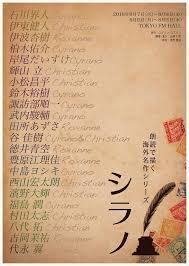 2016年9月7日(水)～
TOKYO FM HALL
石川界人 Christian
伊東健人 Christian
伊波杏樹 Roxanne
柏木佑介 Cyrano
岸尾だいすけ Cyrano
輝山立 Christian
小松昌平 Christian
鈴木裕樹 Cyrano
諏訪部順一 Cyrano
武内駿輔 Cyrano
田所あずさ Roxanne
谷佳樹 Cyrano
徳井青空 Roxanne
豊原江理佳 Roxanne
中島ヨシキ Christian
西山宏太朗 Christian
濱野大輝 Christian
福島潤 Cyrano
村田太志 Christian
八代拓 Christian
吉岡茉祐 Roxanne
代永翼 Christian
朗読で描く
海外名作シリーズ
シラノ